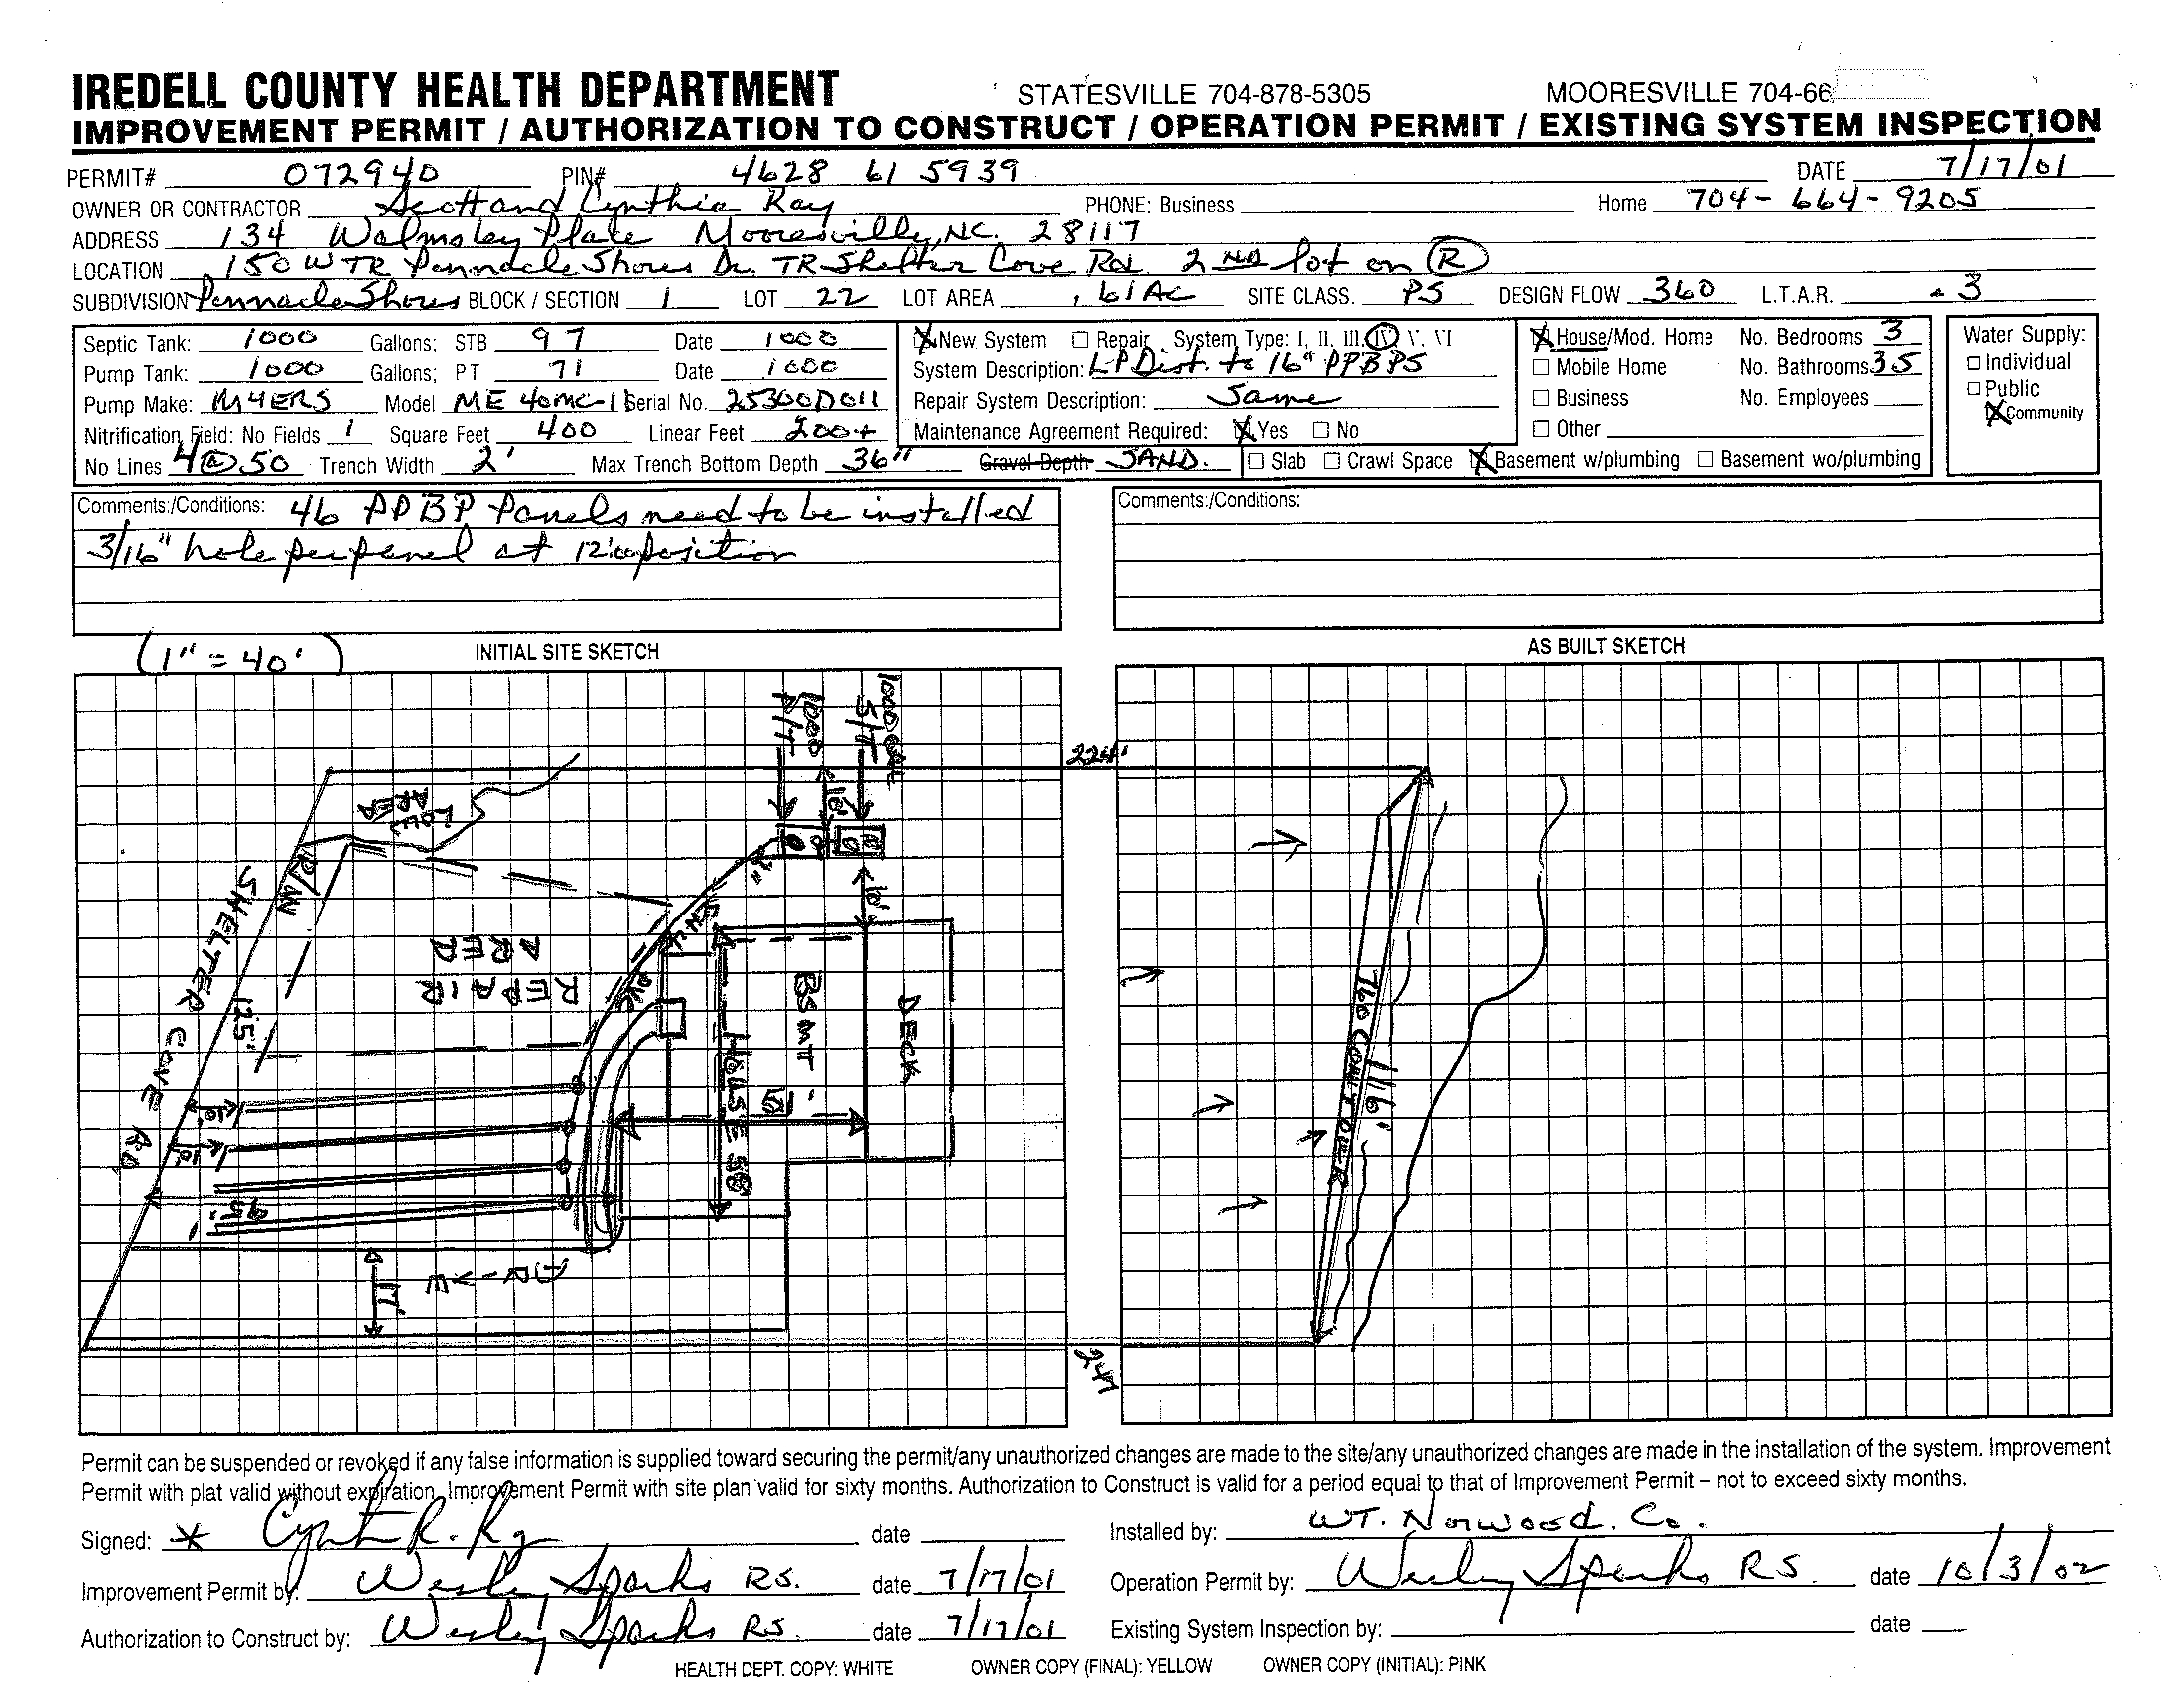 IREDELL COUNTY HEALTH DEPARTMENT STATESVILLE 704-878-5305 MOORESVILLE 704-66
IMPROVEMENT PERMIT / AUTHORIZATION TO CONSTRUCT / OPERATION PERMIT / EXISTING SYSTEM INSPECTION
PERMIT# 072940 PIN# 4628 61 5939 DATE 7/17/01
OWNER OR CONTRACTOR Scott and Cynthia Ray PHONE: Business Home 704-664-9205
ADDRESS 134 Walmsley Place Mooresville, NC. 28117
LOCATION 150 W TR Pennacle Shores Dr. TR Shelter Cove Rd. 2ND lot on R
SUBDIVISION Pennacle Shores BLOCK / SECTION 1 LOT 22 LOT AREA .61 AC SITE CLASS. PS DESIGN FLOW 360 L.T.A.R. .3
Septic Tank: 1000 Gallons; STB 97 Date 1000 New System Repair System Type: I, II, III, IV V. VI House/Mod. Home No. Bedrooms 3 Water Supply:
Pump Tank: 1000 Gallons; PT 71 Date 1000 System Description: LP Dist. to 16" PPBPS Mobile Home No. Bathrooms 3.5 Individual
Pump Make: MYERS Model ME 40MC-1 Serial No. 25300D011 Repair System Description: Same Business No. Employees Public
Nitrification Field: No Fields 1 Square Feet 400 Linear Feet 200+ Maintenance Agreement Required: Yes No Other Community
No Lines 4@50 Trench Width 2' Max Trench Bottom Depth 36" Gravel Depth SAND. Slab Crawl Space Basement w/plumbing Basement wo/plumbing
Comments:/Conditions: 46 PPBP Panels need to be installed Comments:/Conditions:
3/16" hole per panel at 12:00 position
(1" = 40') INITIAL SITE SKETCH AS BUILT SKETCH
1000 GAL S/T
1000 P/T
224'
LOW AREA
10'
R/W
SHELTER COVE RD
125'
REPAIR AREA
2"
SCH 40 PVC
10'
BSMT
DECK
HOUSE 58
51'
10'
10'
95'
17'
DRIVE
760 CONTOUR
116'
247
Permit can be suspended or revoked if any false information is supplied toward securing the permit/any unauthorized changes are made to the site/any unauthorized changes are made in the installation of the system. Improvement
Permit with plat valid without expiration. Improvement Permit with site plan valid for sixty months. Authorization to Construct is valid for a period equal to that of Improvement Permit – not to exceed sixty months.
Signed: * Cynthia R. Ray date Installed by: WT. Norwood. Co.
Improvement Permit by: Wesley Sparks RS. date 7/17/01 Operation Permit by: Wesley Sparks RS. date 10/3/02
Authorization to Construct by: Wesley Sparks RS. date 7/17/01 Existing System Inspection by: date
HEALTH DEPT. COPY: WHITE OWNER COPY (FINAL): YELLOW OWNER COPY (INITIAL): PINK